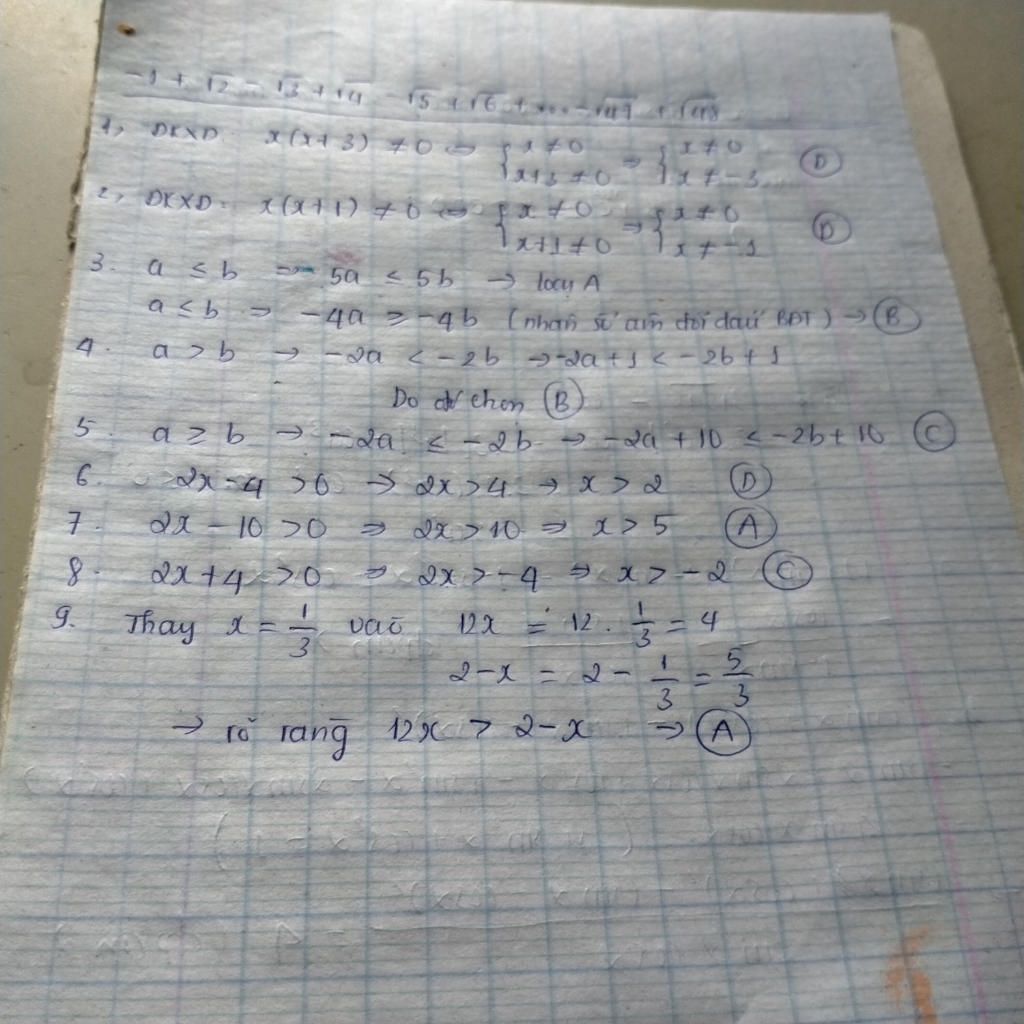 -1 + √2 - √3 + √4 - √5 + √6 + ... - √47 + √48
1, ĐKXĐ: x(x+3) ≠ 0 ⇔ { x ≠ 0 ; x+3 ≠ 0 ⇒ { x ≠ 0 ; x ≠ -3 (D)
2, ĐKXĐ: x(x+1) ≠ 0 ⇔ { x ≠ 0 ; x+1 ≠ 0 ⇒ { x ≠ 0 ; x ≠ -1 (D)
3. a ≤ b ⇒ 5a ≤ 5b → loại A
a ≤ b ⇒ -4a ≥ -4b (nhân số âm đổi dấu BĐT) → (B)
4. a > b → -2a < -2b → -2a + 1 < -2b + 1
Do đó chọn (B)
5. a ≥ b → -2a ≤ -2b → -2a + 10 ≤ -2b + 10 (C)
6. 2x - 4 > 0 → 2x > 4 → x > 2 (D)
7. 2x - 10 > 0 ⇒ 2x > 10 ⇒ x > 5 (A)
8. 2x + 4 > 0 ⇒ 2x > -4 ⇒ x > -2 (C)
9. Thay x = 1/3 vào 12x = 12 . 1/3 = 4
2 - x = 2 - 1/3 = 5/3
→ rõ ràng 12x > 2 - x → (A)